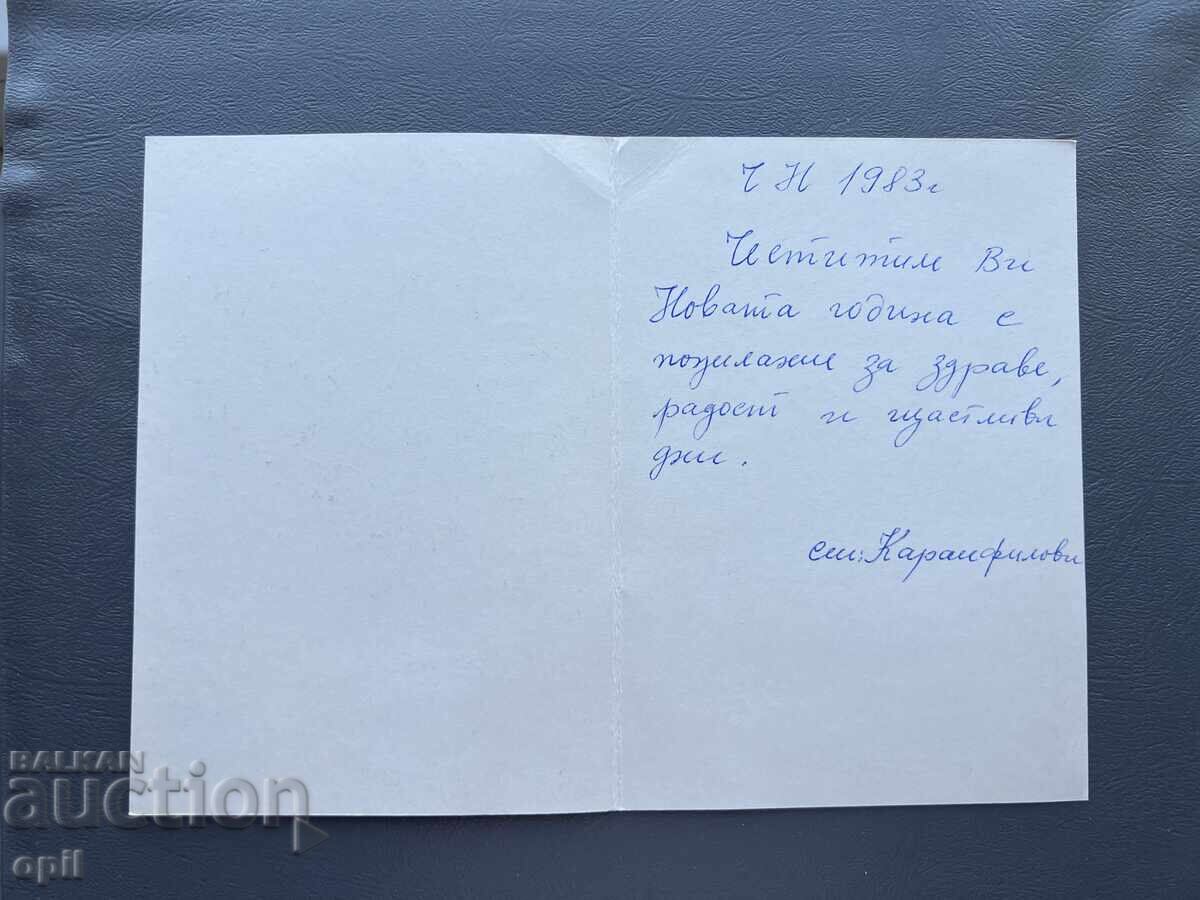 Ч Н 1983г
Честитим Ви
Новата година с
пожелание за здраве,
радост и щастливи
дни.
сем: Каранфилови
BALKAN
auction
opil